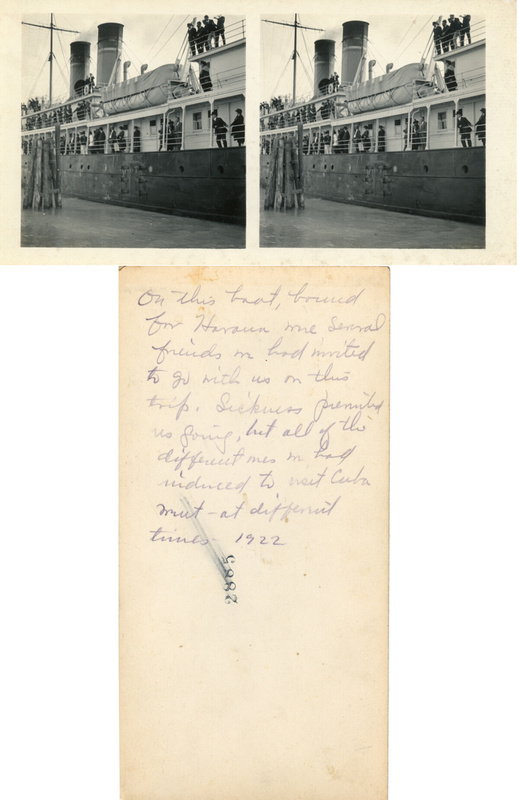 On this boat, bound
for Havana were several
friends we had invited
to go with us on this
trip. Sickness prevented
us going, but all of the
different ones we had
induced to visit Cuba
went - at different
times 1922
2885